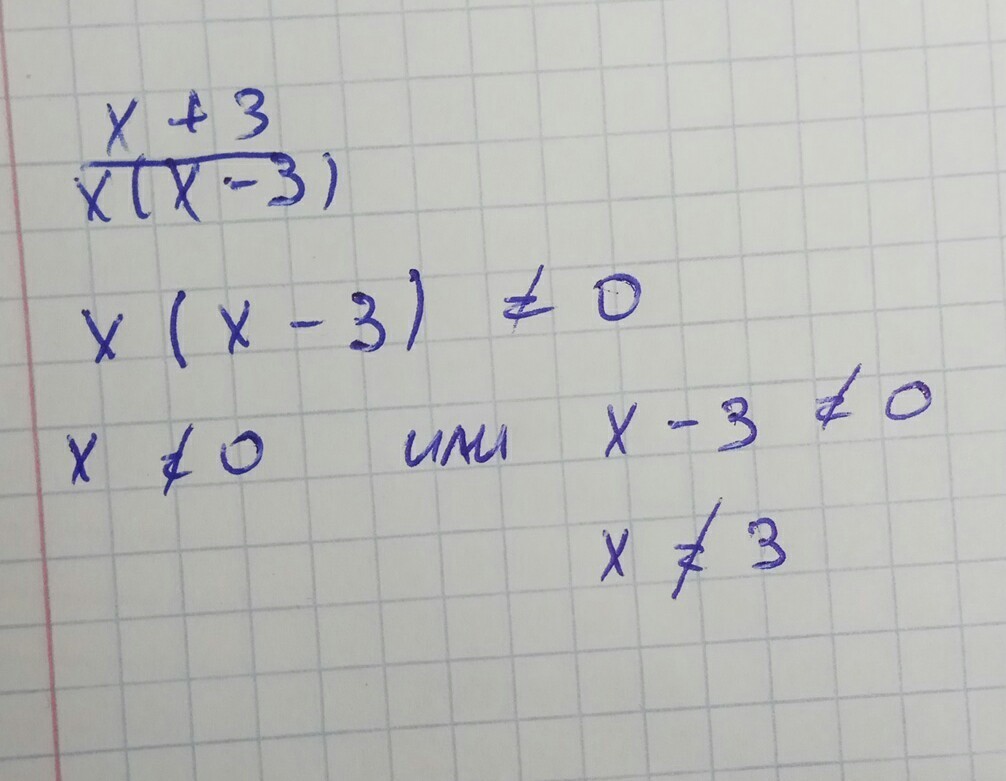 x + 3
x(x - 3)
x (x - 3) ≠ 0
x ≠ 0 или x - 3 ≠ 0
x ≠ 3